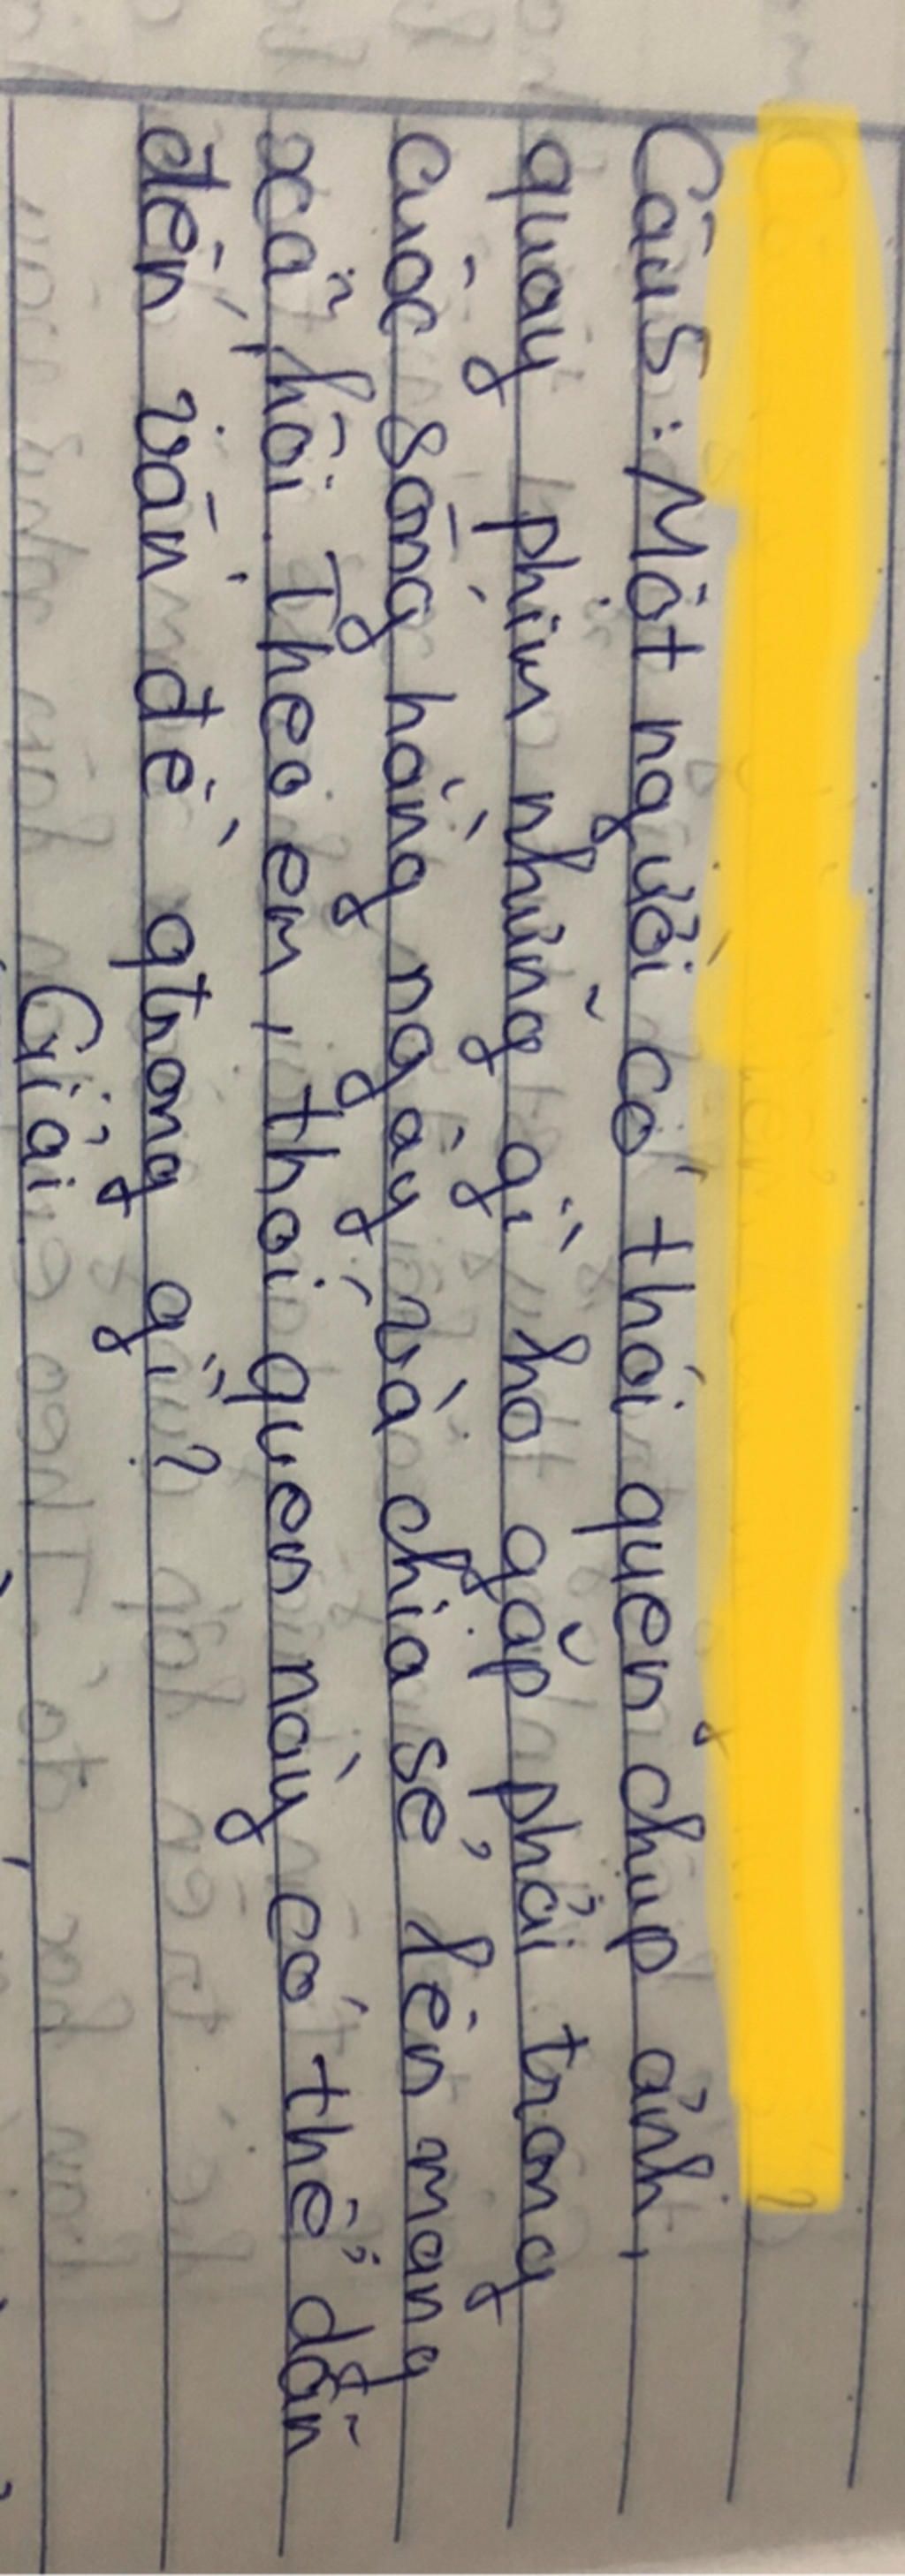 Câu 5: Một người có thói quen chụp ảnh,
quay phim những gì họ gặp phải trong
cuộc sống hằng ngày và chia sẻ lên mạng
xã hội. Theo em, thói quen này có thể dẫn
đến vấn đề qtrọng gì?
Giải